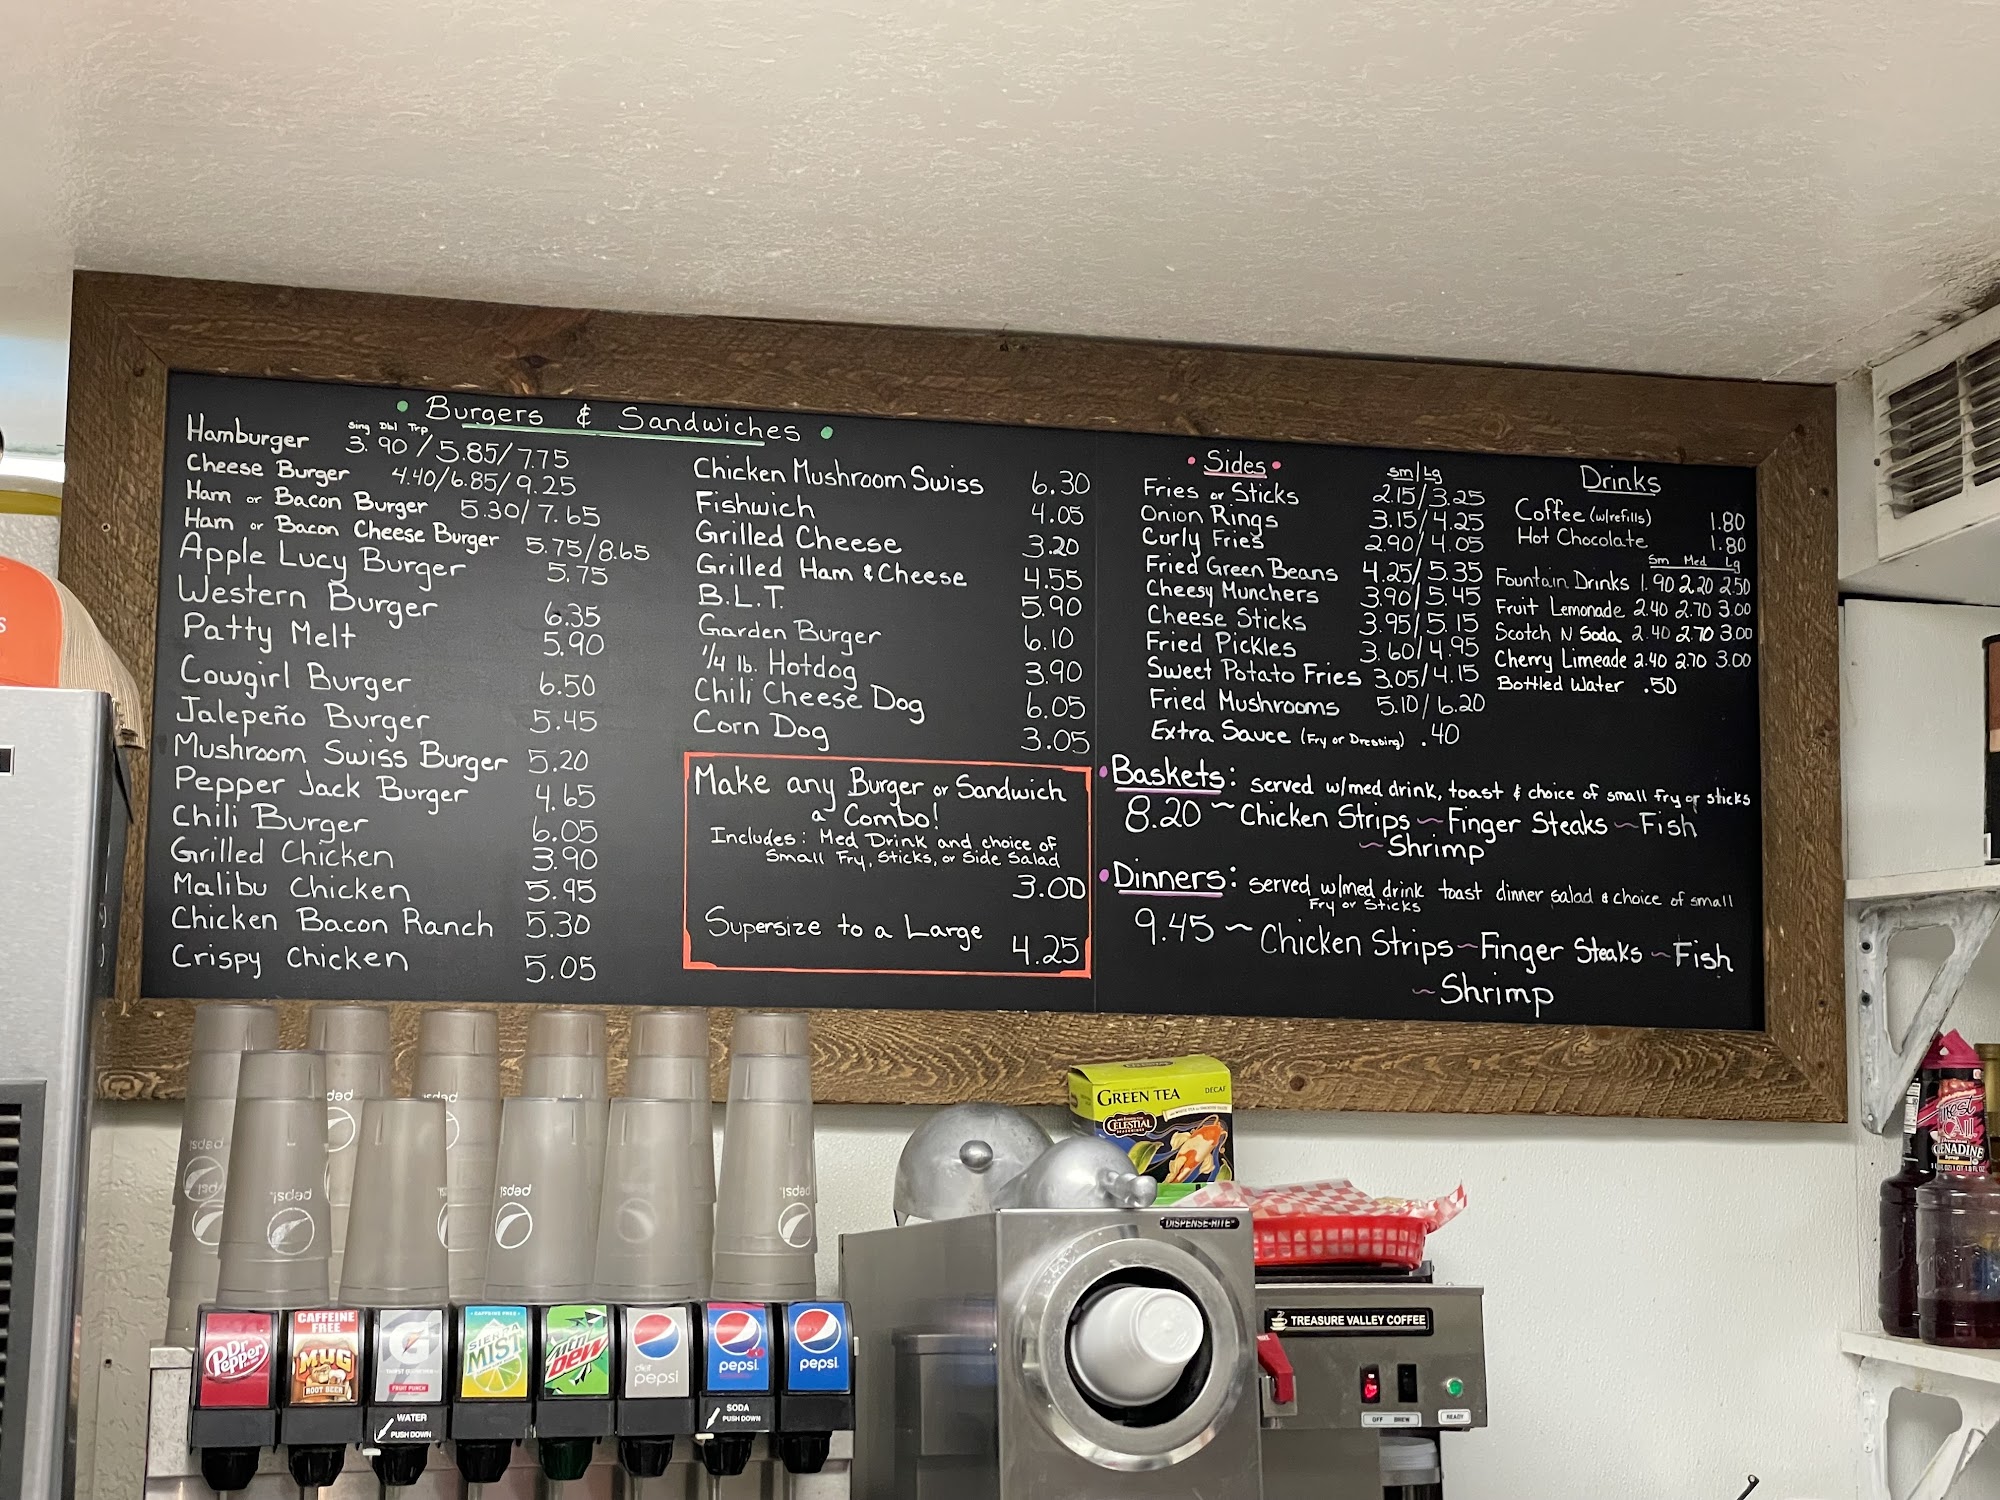 • Burgers & Sandwiches •
Sing Dbl Trp
Hamburger 3.90/5.85/7.75
Cheese Burger 4.40/6.85/9.25
Ham or Bacon Burger 5.30/7.65
Ham or Bacon Cheese Burger 5.75/8.65
Apple Lucy Burger 5.75
Western Burger 6.35
Patty Melt 5.90
Cowgirl Burger 6.50
Jalepeño Burger 5.45
Mushroom Swiss Burger 5.20
Pepper Jack Burger 4.65
Chili Burger 6.05
Grilled Chicken 3.90
Malibu Chicken 5.95
Chicken Bacon Ranch 5.30
Crispy Chicken 5.05
Chicken Mushroom Swiss 6.30
Fishwich 4.05
Grilled Cheese 3.20
Grilled Ham & Cheese 4.55
B.L.T. 5.90
Garden Burger 6.10
1/4 lb. Hotdog 3.90
Chili Cheese Dog 6.05
Corn Dog 3.05
Make any Burger or Sandwich
a Combo!
Includes: Med Drink and choice of
Small Fry, Sticks, or Side Salad
3.00
Supersize to a Large
4.25
• Sides • sm/Lg
Fries or Sticks 2.15/3.25
Onion Rings 3.15/4.25
Curly Fries 2.90/4.05
Fried Green Beans 4.25/5.35
Cheesy Munchers 3.90/5.45
Cheese Sticks 3.95/5.15
Fried Pickles 3.60/4.95
Sweet Potato Fries 3.05/4.15
Fried Mushrooms 5.10/6.20
Extra Sauce (Fry or Dressing) .40
Drinks
Coffee (w/refills) 1.80
Hot Chocolate 1.80
Sm Med Lg
Fountain Drinks 1.90 2.20 2.50
Fruit Lemonade 2.40 2.70 3.00
Scotch N Soda 2.40 2.70 3.00
Cherry Limeade 2.40 2.70 3.00
Bottled Water .50
• Baskets: served w/med drink, toast & choice of small fry or sticks
8.20 ~ Chicken Strips ~ Finger Steaks ~ Fish
~ Shrimp
• Dinners: served w/med drink toast dinner salad & choice of small
Fry or Sticks
9.45 ~ Chicken Strips ~ Finger Steaks ~ Fish
~ Shrimp
GREEN TEA
DECAF
CELESTIAL
pepsi
pepsi
pepsi
pepsi
pepsi
pepsi
DISPENSE-RITE
TREASURE VALLEY COFFEE
OFF BREW
READY
GRENADINE
Dr Pepper
CAFFEINE
FREE
MUG
ROOT BEER
G
FRUIT PUNCH
WATER
PUSH DOWN
CAFFEINE FREE
SIERRA
MIST
MTN
DEW
diet
pepsi
pepsi
SODA
PUSH DOWN
pepsi